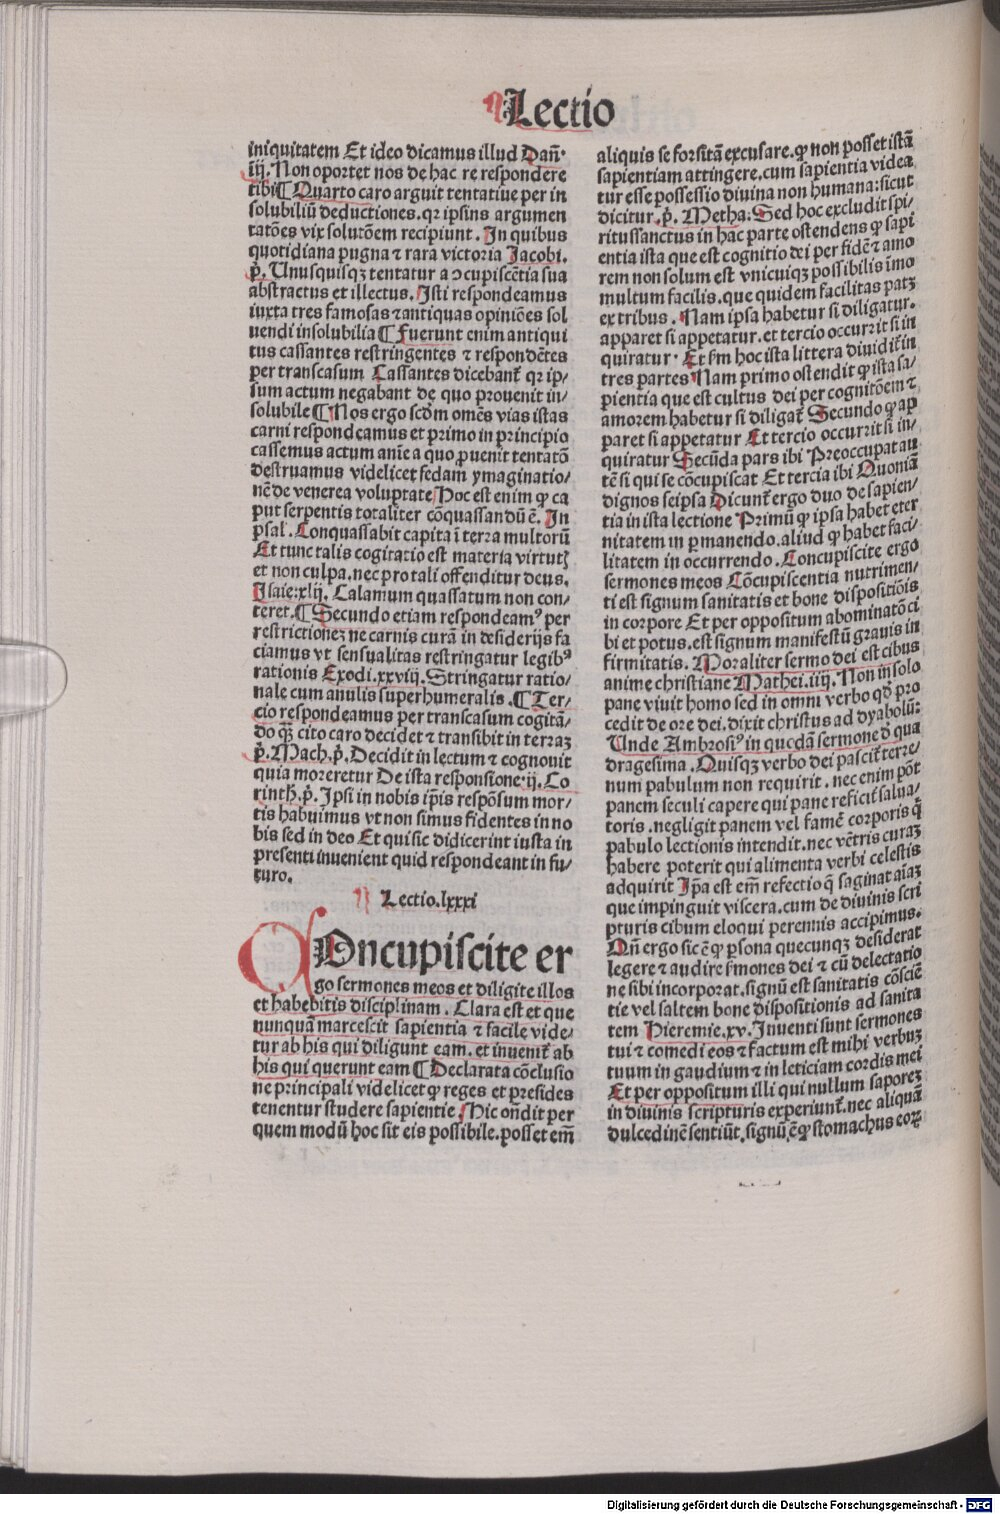 Lectio
iniquitatem Et ideo dicamus illud Dañ.
iij. Non oportet nos de hac re respondere
tibi ¶ Quarto caro arguit tentatiue per in
solubiliũ deductiones. qz ipsius argumen
tatões vix solutõem recipiunt. In quibus
quotidiana pugna ⁊ rara victoria Jacobi.
p̃. Unusquisqz tentatur a ɔcupiscẽtia sua
abstractus et illectus. Isti respondeamus
iuxta tres famosas ⁊ antiquas opiniões sol
uendi insolubilia ¶ Fuerunt enim antiqui
tus cassantes restringentes ⁊ respondẽtes
per transcasum Cassantes dicebant̃ qz ip/
sum actum negabant de quo prouenit in/
solubile ¶ Nos ergo scd̃m omẽs vias istas
carni respondeamus et primo in principio
cassemus actum anĩe a quo ꝓuenit tentatõ
destruamus videlicet fedam ymaginatio/
nẽ de venerea voluptate Hoc est enim ꝙ ca
put serpentis totaliter cõquassandũ ẽ. In
psal. Conquassabit capita ĩ terra multorũ
Et tunc talis cogitatio est materia virtutꝭ
et non culpa. nec pro tali offenditur deus.
Isaie: xlij. Calamum quassatum non con/
teret. ¶ Secundo etiam respondeamꝰ per
restrictionez ne carnis curã in desiderijs fa
ciamus vt sensualitas restringatur legibꝰ
rationis Exodi. xxviij. Stringatur ratio/
nale cum anulis superhumeralis. ¶ Ter/
cio respondeamus per transcasum cogitã/
do qꝫ cito caro decidet ⁊ transibit in terraz
p̃. Mach. p̃. Decidit in lectum ⁊ cognouit
quia moreretur De ista responsione. ij. Co
rinth. p̃. Ipsi in nobis ip̃is respõsum mor/
tis habuimus vt non simus fidentes in no
bis sed in deo Et qui sic didicerint iusta in
presenti inuenient quid respondeant in fu/
turo.
Lectio. lxxxi
COncupiscite er
go sermones meos et diligite illos
et habebitis disciplinam. Clara est et que
nunquã marcescit sapientia ⁊ facile vide/
tur ab his qui diligunt eam. et inuenit̃ ab
his qui querunt eam ¶ Declarata cõclusio
ne principali videlicet ꝙ reges et presides
tenentur studere sapientie Hic oñdit per
quem modũ hoc sit eis possibile. posset em̃
aliquis se forsitã excusare. ꝙ non posset istã
sapientiam attingere. cum sapientia videa
tur esse possessio diuina non humana: sicut
dicitur. p̃. Metha: Sed hoc excludit spi/
ritussanctus in hac parte ostendens ꝙ sapi
entia ista que est cognitio dei per fidẽ ⁊ amo
rem non solum est vnicuiqz possibilis ĩmo
multum facilis. que quidem facilitas patz
ex tribus. Nam ipsa habetur si diligatur.
apparet si appetatur. et tercio occurrit si in
quiratur. Et sm̃ hoc ista littera diuidit̃ in
tres partes Nam primo ostendit ꝙ ista sa/
pientia que est cultus dei per cognitõem ⁊
amorem habetur si diligat̃ Secundo ꝙ ap
paret si appetatur Et tercio occurrit si in/
quiratur Secũda pars ibi Preoccupat au
tẽ si qui se cõcupiscat Et tercia ibi Quoniã
dignos seipsa Dicunt̃ ergo duo de sapien/
tia in ista lectione Primũ ꝙ ipsa habet eter
nitatem in ꝑmanendo. aliud ꝙ habet faci/
litatem in occurrendo. Concupiscite ergo
sermones meos Cõcupiscentia nutrimen/
ti est signum sanitatis et bone dispositiõis
in corpore Et per oppositum abominatõ ci
bi et potus. est signum manifestũ grauis in
firmitatis. Moraliter sermo dei est cibus
anime christiane Mathei. iiij. Non in solo
pane viuit homo sed in omni verbo qd̃ pro
cedit de ore dei. dixit christus ad dyabolũ:
Unde Ambrosiꝰ in quodã sermone d̃ qua
dragesima. Quisqz verbo dei pascit̃ terre/
num pabulum non requirit. nec enim põt
panem seculi capere qui pane reficit̃ salua/
toris. negligit panem vel famẽ corporis q̃
pabulo lectionis intendit. nec vẽtris curaz
habere poterit qui alimenta verbi celestis
adquirit Ip̃a est em̃ refectio q̃ saginat aĩaz
que impinguit viscera. cum de diuinis scri
pturis cibum eloqui perennis accipimus.
Qñ ergo sic ẽ ꝙ ꝑsona quecunqz desiderat
legere ⁊ audire s̃mones dei ⁊ cũ delectatio
ne sibi incorporat. signũ est sanitatis cõsciẽ
tie vel saltem bone dispositionis ad sanita
tem Hieremie. xv. Inuenti sunt sermones
tui ⁊ comedi eos ⁊ factum est mihi verbuz
tuum in gaudium ⁊ in leticiam cordis mei
Et per oppositum illi qui nullum saporez
in diuinis scripturis experiunt̃. nec aliquã
dulcedinẽ sentiũt, signũ ẽ ꝙ stomachus eoꝝ
Digitalisierung gefördert durch die Deutsche Forschungsgemeinschaft - DFG